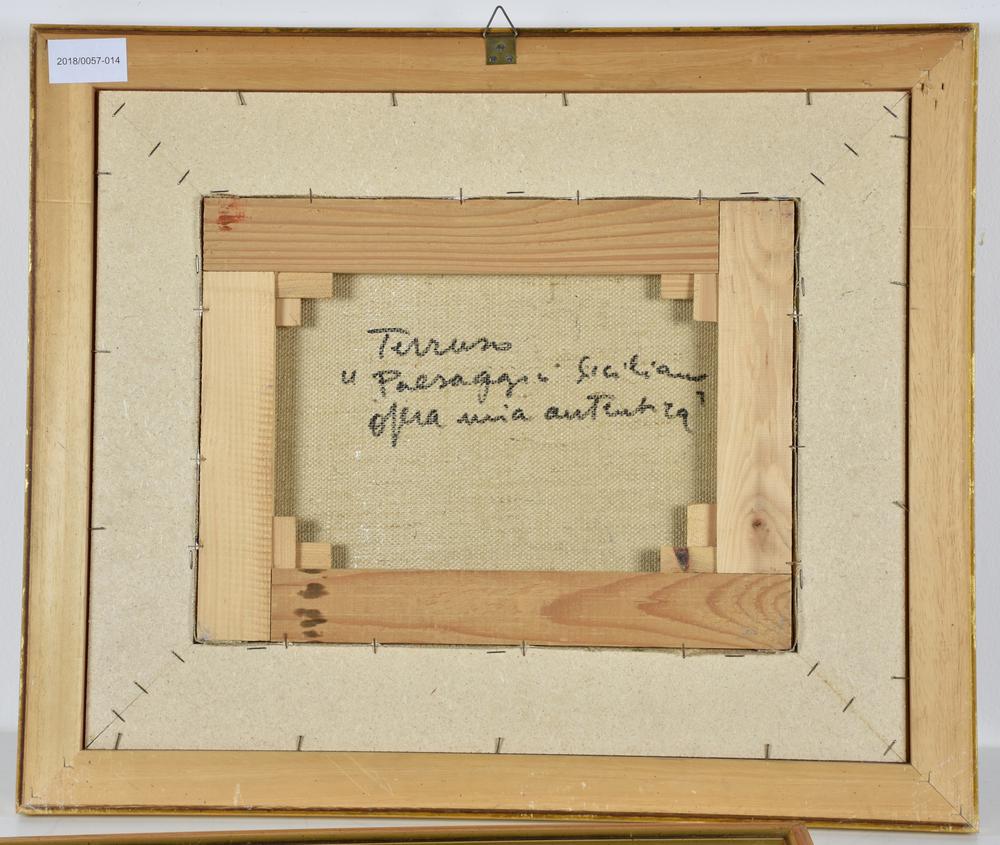 2018/0057-014
Terruso
"Paesaggio Siciliano
opera mia autentica"